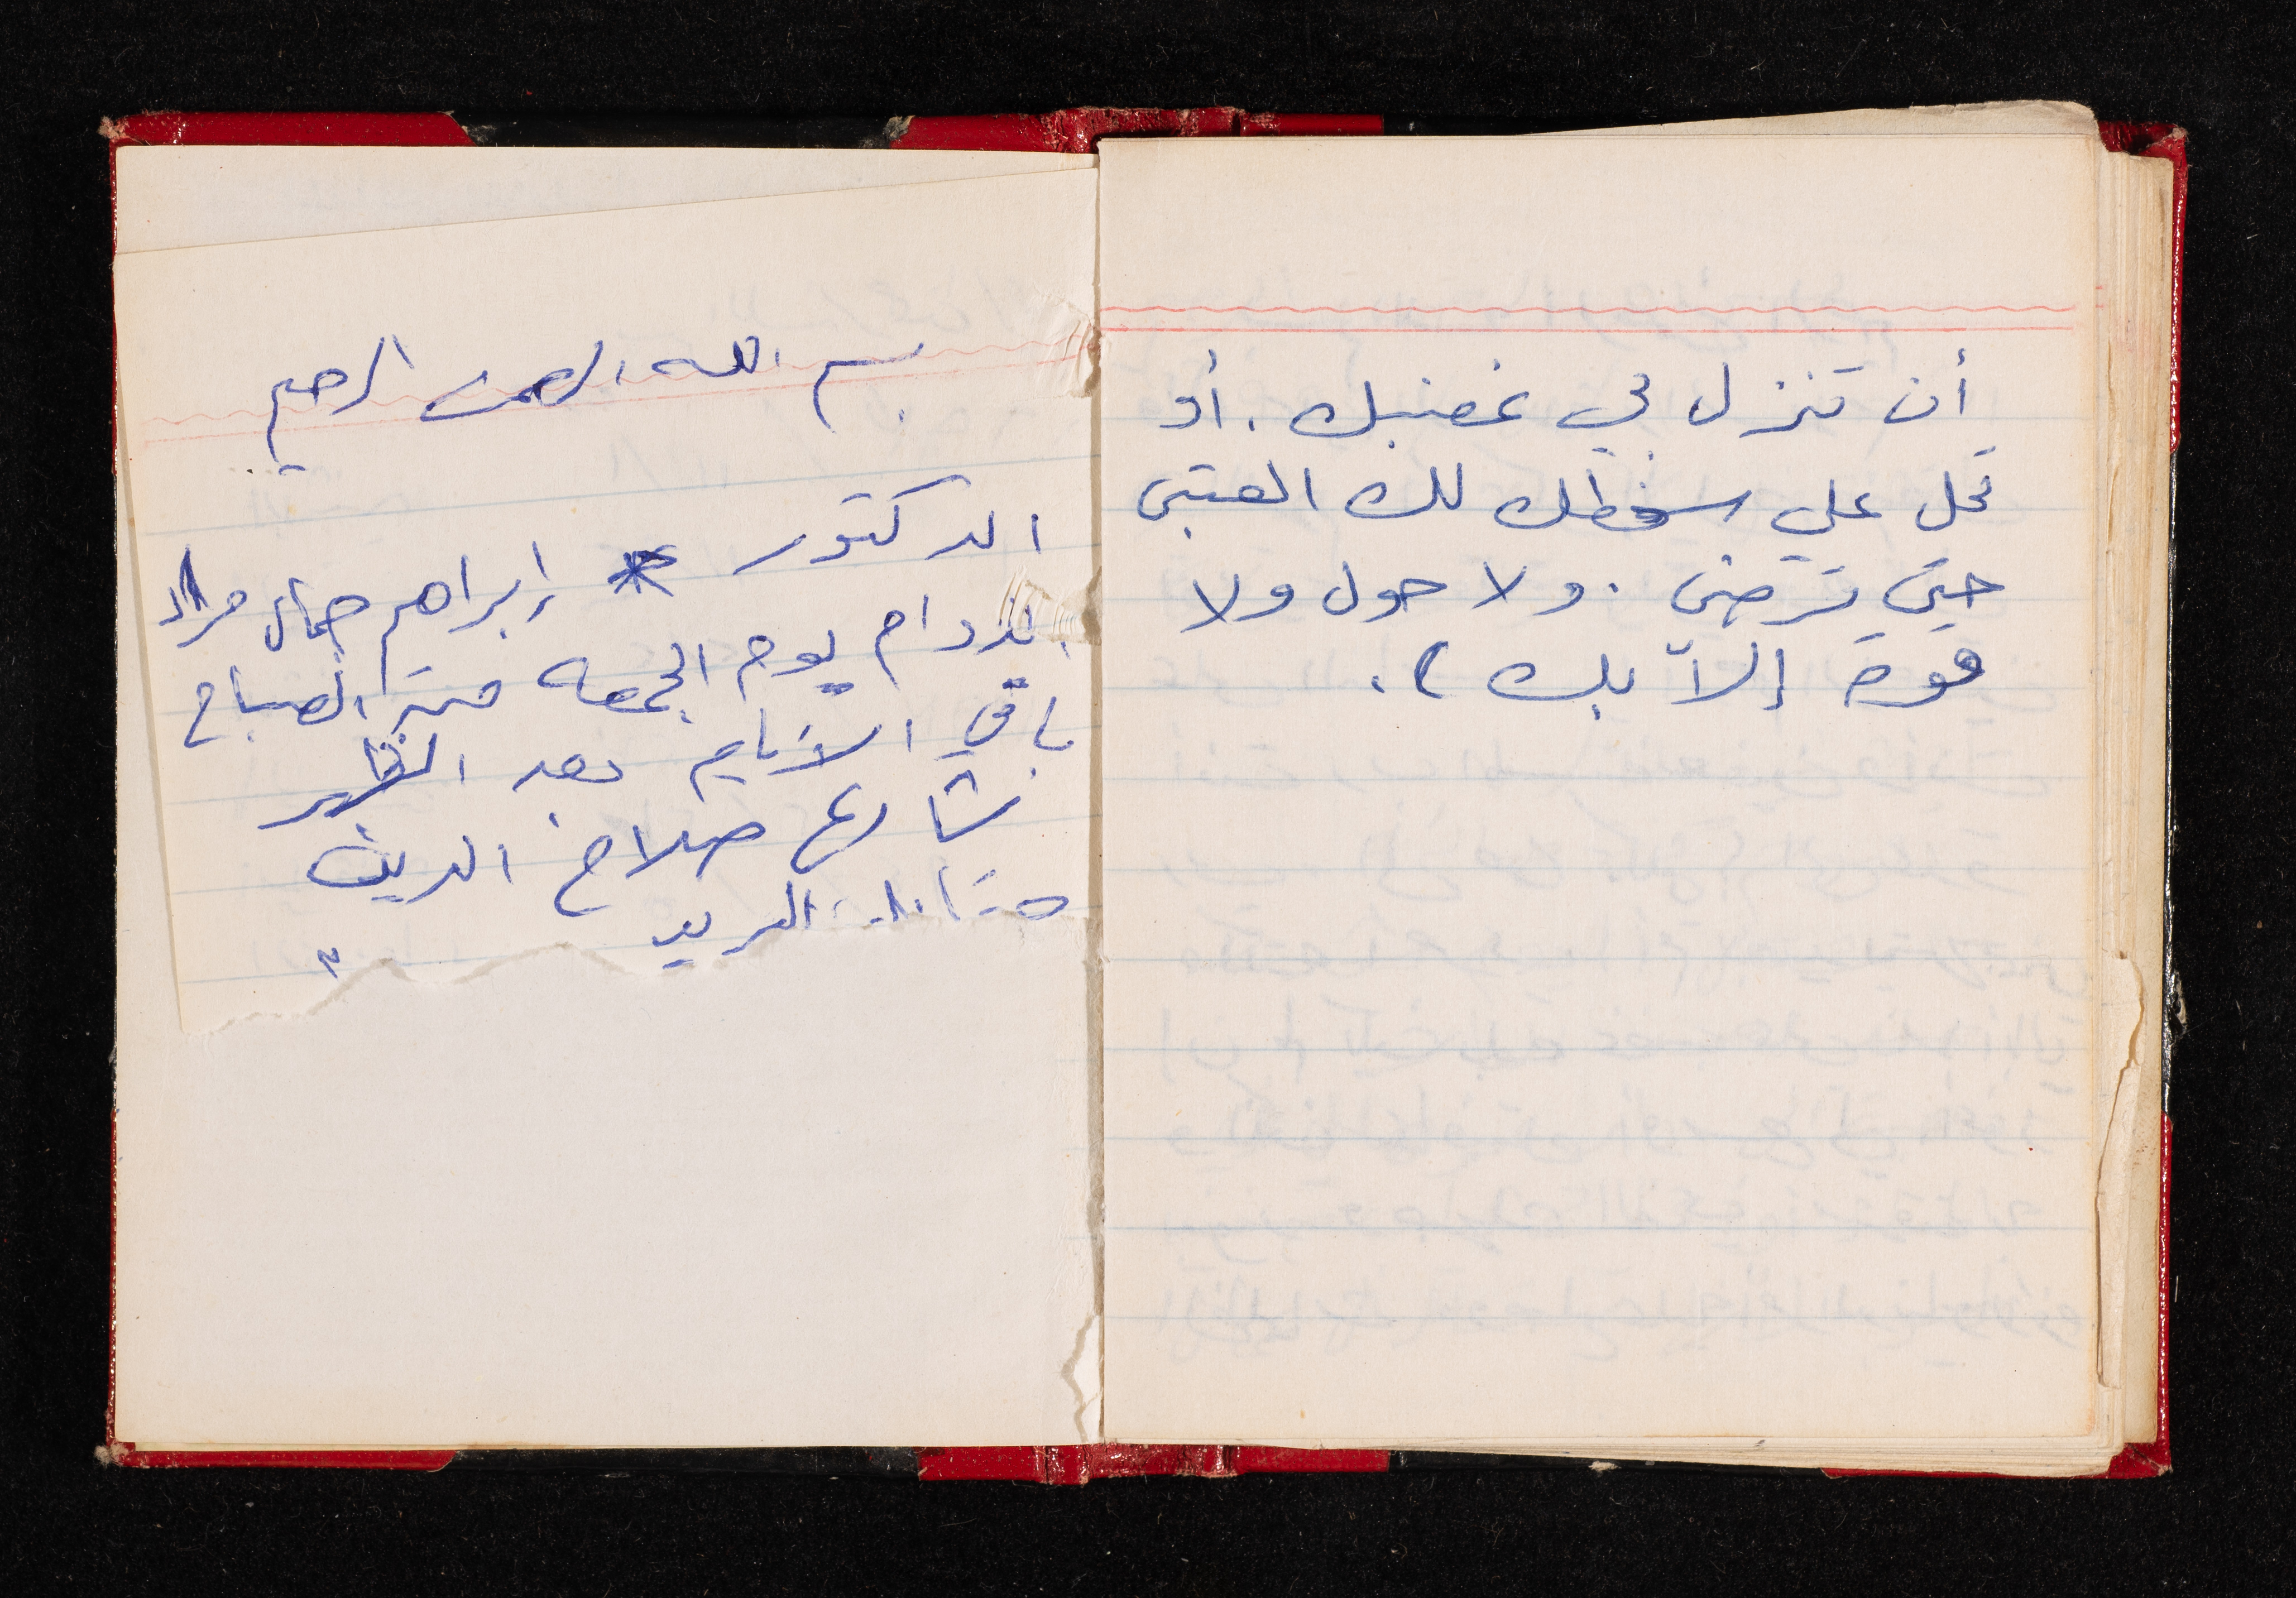 أن تنزل بي غضبك. أو
تحل علي سخطك لك العتبى
حتى ترضى. ولا حول ولا
قوة إلاّ بك).
بسم الله الرحمن الرحيم
الدكتور إبراهيم جمال مراد
الدوام يوم الجمعه من الصباح
باقي الأيام بعد الظهر
شارع صلاح الدين
البريد